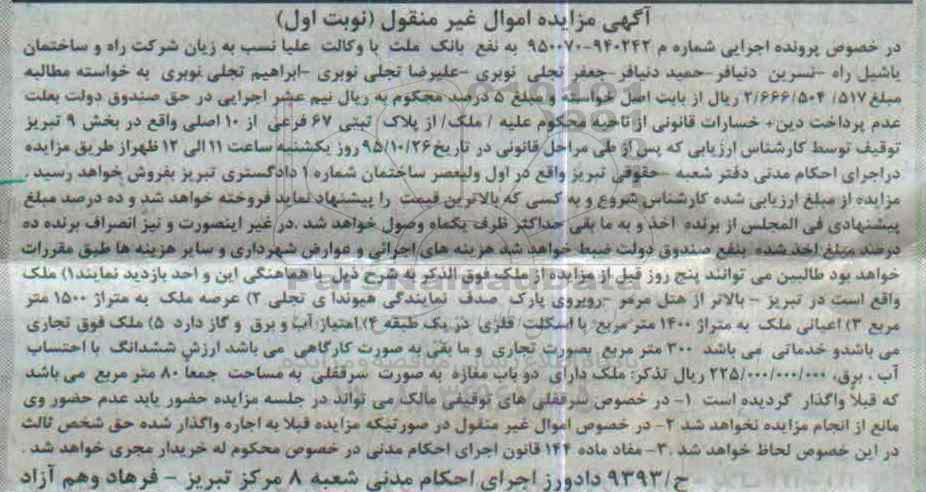 آگهی مزایده اموال غیر منقول (نوبت اول)
در خصوص پرونده اجرایی شماره م ۹۴۰۲۴۲-۹۵۰۰۷۰ به نفع بانک ملت با وکالت علیا نسب به زیان شرکت راه و ساختمان
یاشیل راه -نسرین دنیافر-حمید دنیافر-جعفر تجلی نوبری -علیرضا تجلی نوبری -ابراهیم تجلی نوبری به خواسته مطالبه
مبلغ ۵۱۷/ ۲/۶۶۶/۵۰۴ ریال از بابت اصل خواسته و مبلغ ۵ درصد محکوم به ریال نیم عشر اجرایی در حق صندوق دولت بعلت
عدم پرداخت دین+ خسارات قانونی از ناحیه محکوم علیه / ملک/ از پلاک ثبتی ۶۷ فرعی از ۱۰ اصلی واقع در بخش ۹ تبریز
توقیف توسط کارشناس ارزیابی که پس از طی مراحل قانونی در تاریخ ۹۵/۱۰/۲۶ روز یکشنبه ساعت ۱۱ الی ۱۲ ظهر از طریق مزایده
دراجرای احکام مدنی دفتر شعبه حقوقی تبریز واقع در اول ولیعصر ساختمان شماره ۱ دادگستری تبریز بفروش خواهد رسید .
مزایده از مبلغ ارزیابی شده کارشناس شروع و به کسی که بالاترین قیمت را پیشنهاد نماید فروخته خواهد شد و ده درصد مبلغ
پیشنهادی فی المجلس از برنده اخذ و به ما بقی حداکثر ظرف یکماه وصول خواهد شد .در غیر اینصورت و نیز انصراف برنده ده
درصد مبلغ اخذ شده بنفع صندوق دولت ضبط خواهد شد هزینه های اجرائی و عوارض شهرداری و سایر هزینه ها طبق مقررات
خواهد بود طالبین می توانند پنج روز قبل از مزایده از ملک فوق الذکر به شرح ذیل با هماهنگی این و احد بازدید نمایند۱) ملک
واقع است در تبریز - بالاتر از هتل مرمر -روبروی پارک صدف نمایندگی هیوندا ی تجلی ۲) عرصه ملک به متراژ ۱۵۰۰ متر
مربع ۳) اعیانی ملک به متراژ ۱۴۰۰ متر مربع با اسکلت فلزی در یک طبقه ۴) امتیاز آب و برق و گاز دارد ۵) ملک فوق تجاری
می باشدو خدماتی می باشد ۳۰۰ متر مربع بصورت تجاری و ما بقی به صورت کارگاهی می باشد ارزش ششدانگ با احتساب
آب ، برق، ۲۲۵/۰۰۰/۰۰۰/۰۰۰ ریال تذکر: ملک دارای دو باب مغازه به صورت سرقفلی به مساحت جمعا ۸۰ متر مربع می باشد
که قبلا واگذار گردیده است ۱- در خصوص سرقفلی های توقیفی مالک می تواند در جلسه مزایده حضور یابد عدم حضور وی
مانع از انجام مزایده نخواهد شد ۲- در خصوص اموال غیر منقول در صورتیکه مزایده قبلا به اجاره واگذار شده حق شخص ثالث
در این خصوص لحاظ خواهد شد .۳- مفاد ماده ۱۴۴ قانون اجرای احکام مدنی در خصوص محکوم له خریدار مجری خواهد شد .
ج/۹۳۹۳ دادورز اجرای احکام مدنی شعبه ۸ مرکز تبریز - فرهاد وهم آزاد
ParsNamadData